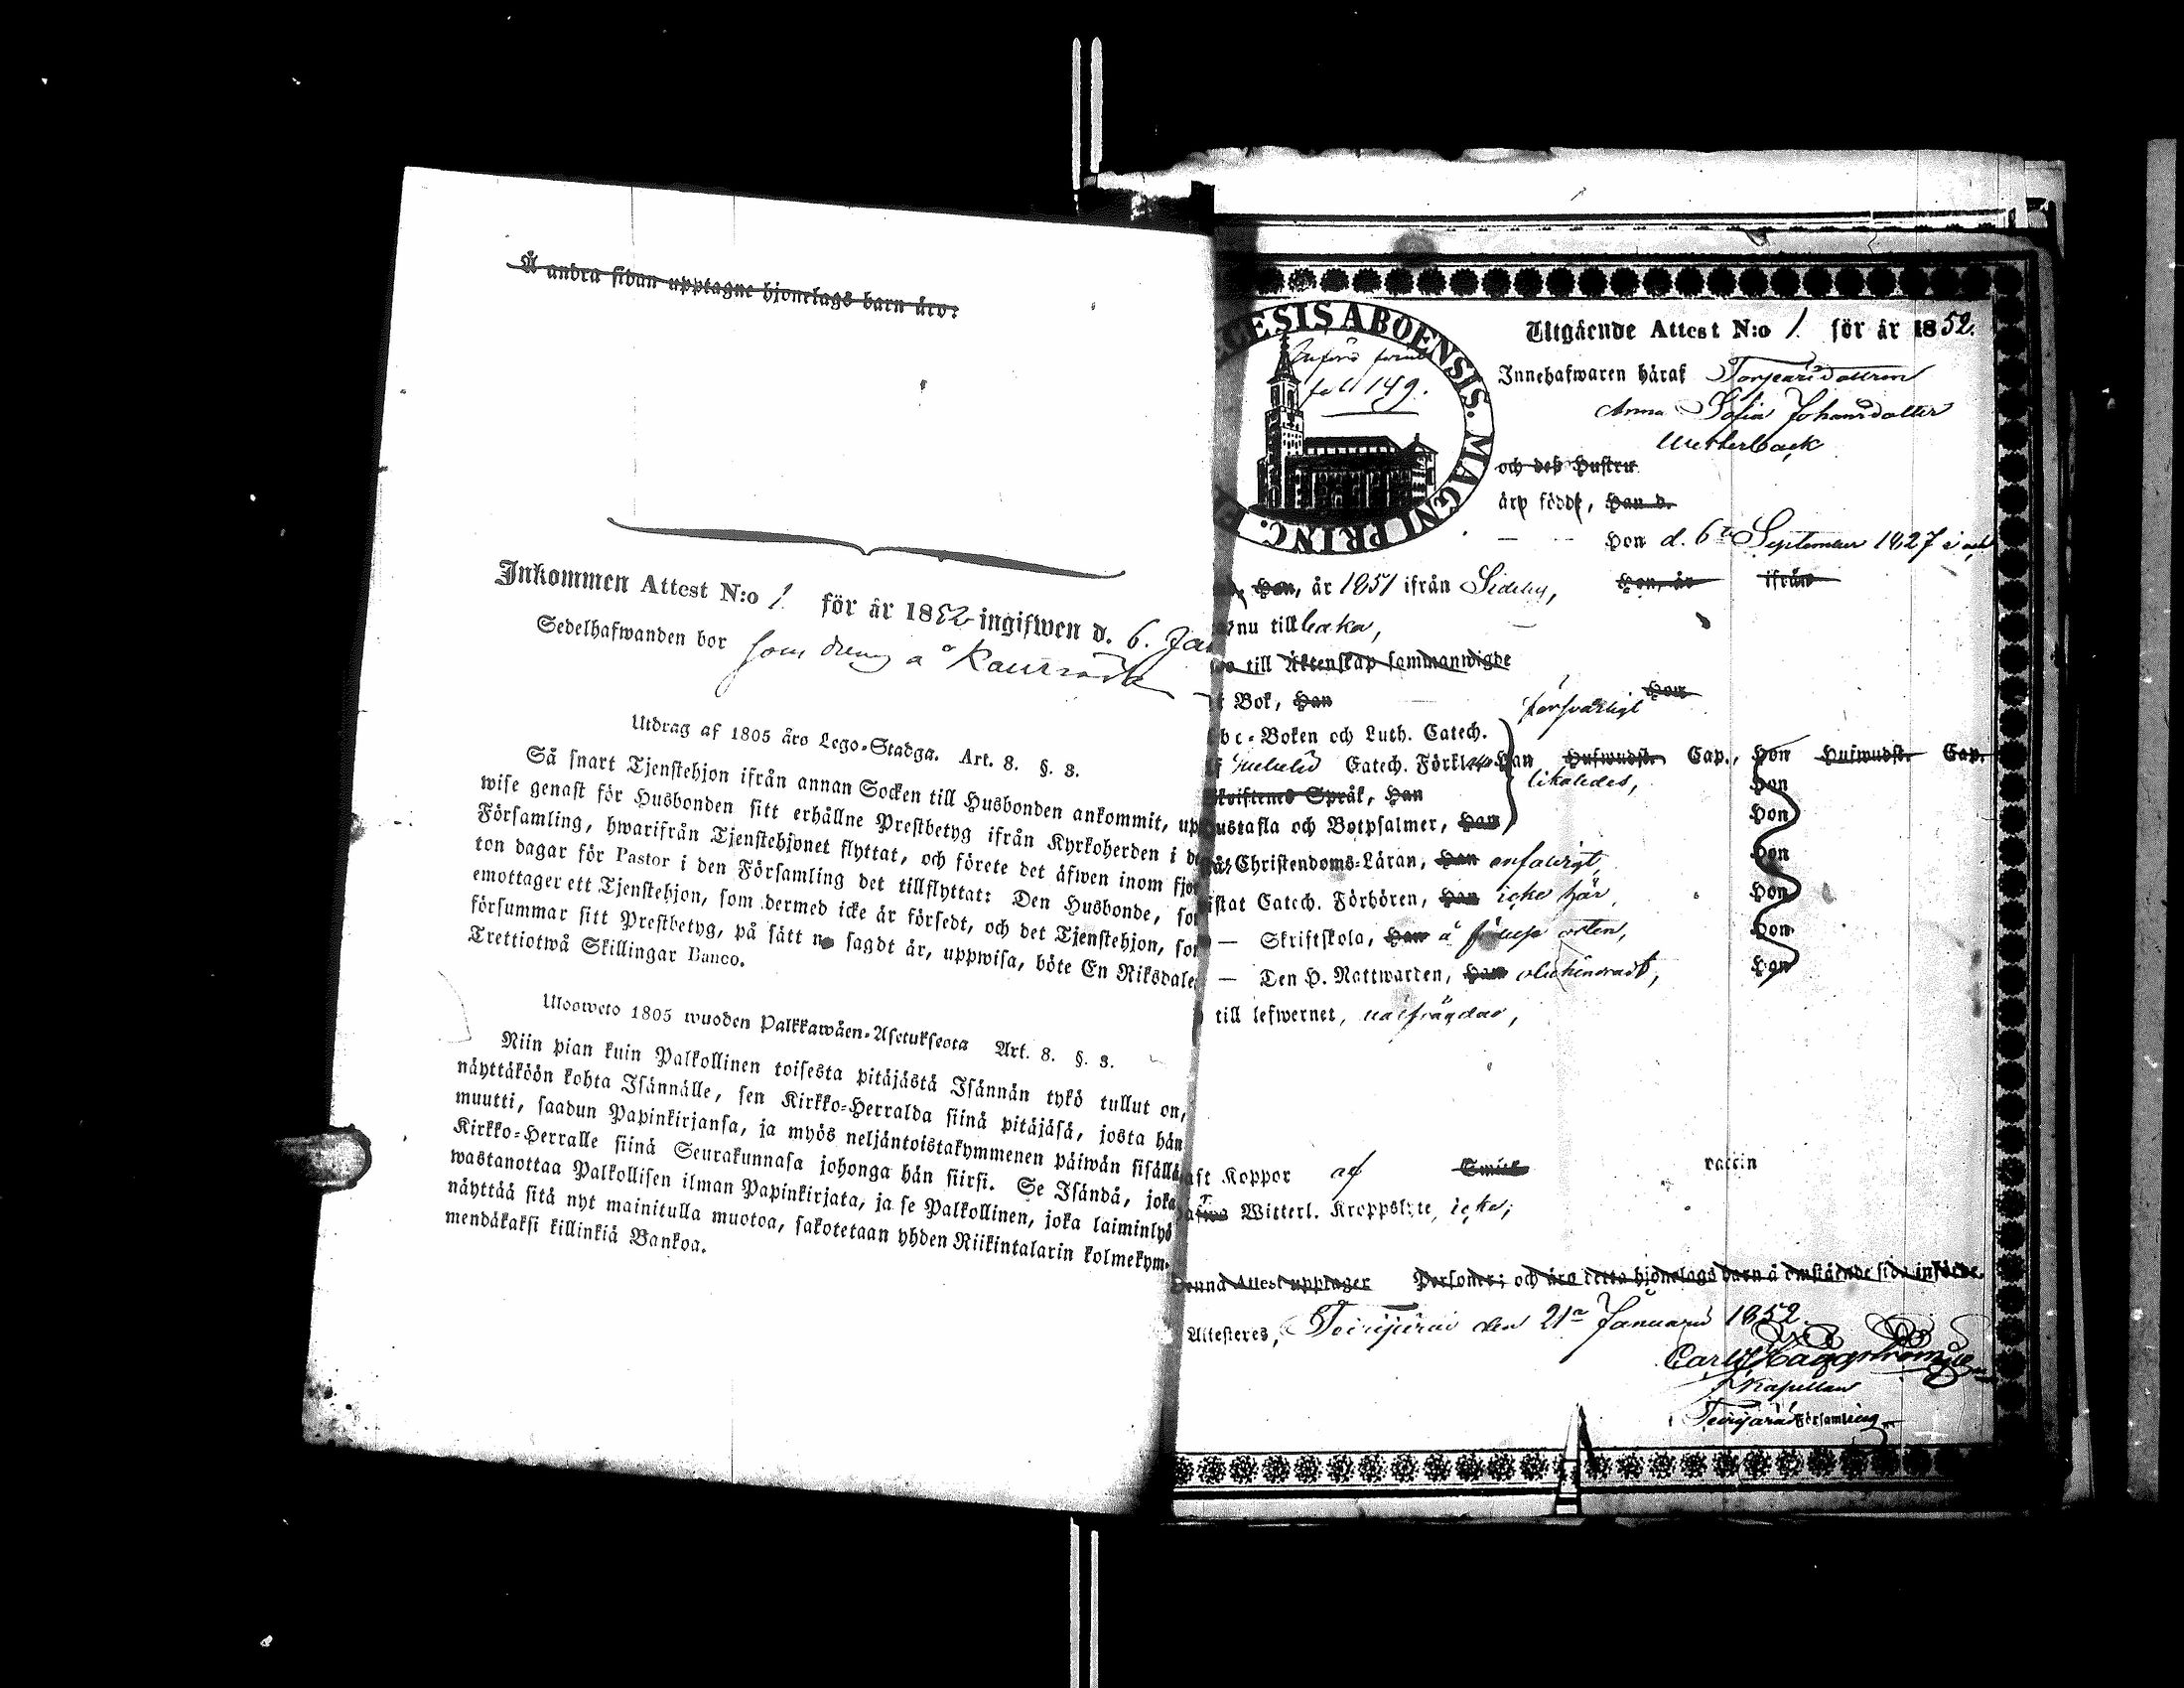 Å andra sidan upptagne hjonelags barn äro:
Inkommen Attest N:o 1 för år 1852 ingifwen d. 6. Jan
Sedelhafwanden bor som dreng å
Utdrag af 1805 års Lego-Stadga. Art. 8. §. 3.
Så snart Tjenstehjon ifrån annan Socken till Husbonden ankommit, upp
wise genast för Husbonden sitt erhållne Prestbetyg ifrån Kyrkoherden i d
Församling, hwarifrån Tjenstehjonet flyttat, och förete det äfwen inom fjor
ton dagar för Pastor i den Församling det tillflyttat: Den Husbonde, som
emottager ett Tjenstehjon, som dermed icke är försedt, och det Tjenstehjon, som
försummar sitt Prestbetyg, på sätt nu sagdt är, uppwisa, böte En Riksdaler
Trettiotwå Skillingar Banco.
Ulosweto 1805 wuoden Palkkawäen-Asetuksesta Art. 8. §. 3.
Niin pian kuin Palkollinen toisesta pitäjästä Isännän tykö tullut on,
näyttäköön kohta Isännälle, sen Kirkko-Herralda siinä pitäjäsä, josta hän
muutti, saadun Papinkirjansa, ja myös neljäntoistakymmenen päiwän sisällä
Kirkko-Herralle siinä Seurakunnasa johonga hän siirsi. Se Isändä, joka
wastanottaa Palkollisen ilman Papinkirjata, ja se Palkollinen, joka laiminlyö
näyttää sitä nyt mainitulla muotoa, sakotetaan yhden Riikintalarin kolmekym-
mendäkaksi killinkiä Bankoa.
CESIS ABOENSIS. MAGNI PRINC. F
foll 149.
Utgående Attest N:o 1. för år 1852.
Innehafwaren häraf
Anna Sofia Johansdotter
Wetterback
och deß Hustru
äro född, Han d.
Hon d. 6te September 1827 i
Han, år 1851 ifrån Sideby, Hon, år ifrån
nu tillbaka,
till Äktenskap sammanwigde
Bok, Han försvarligt Hon
bc-Boken och Luth. Catech.
Catech. Förkl. Han Hufwudst. Cap., Hon Hufwudst. Cap.
likaledes,
Skriftens Språk, Han Hon
ustafla och Botpsalmer, Han Hon
Christendoms-Läran, Han enfaldigt, Hon
istat Catech. Förhören, Han icke här, Hon
— Skriftskola, Han å orten, Hon
— Den H. Nattwarden, Han obehindradt, Hon
till lefwernet,
aft Koppor af Smitt vaccin
Witterl. Kroppslyte, icke;
Denna Attest upptager Personer; och äro detta hjonelags barn å omstående sida införde.
Attesteras, Terijärvi den 21a Januarii 1852.
Carl Häggström
Kapellan
Terijärvi Församling